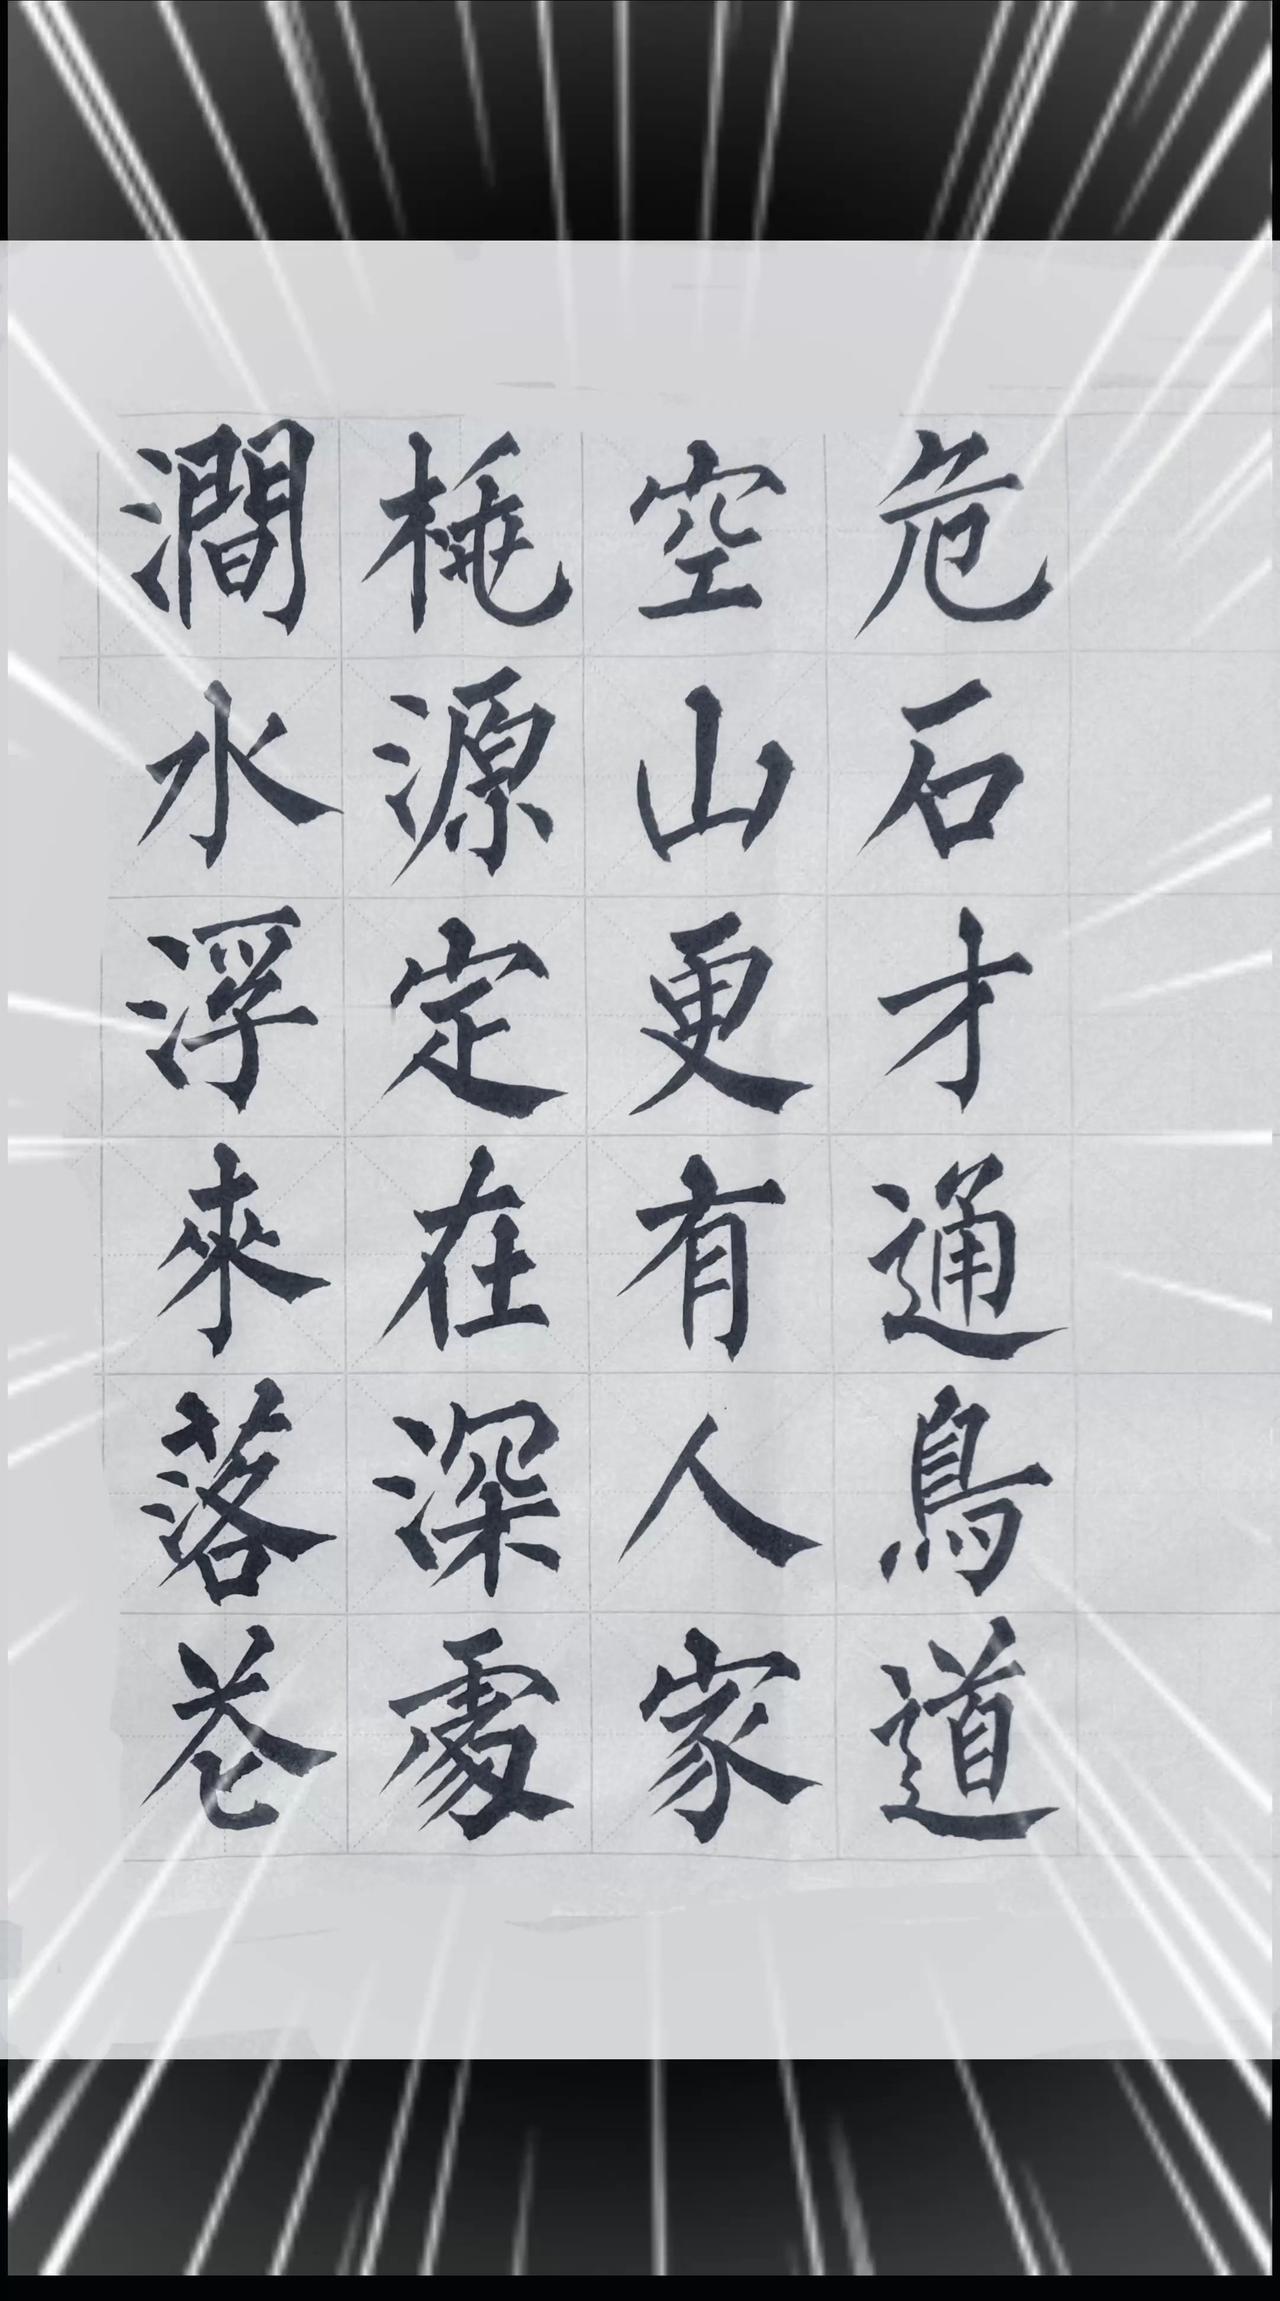 危石才通鳥道
空山更有人家
源定在深處
澗水浮來落